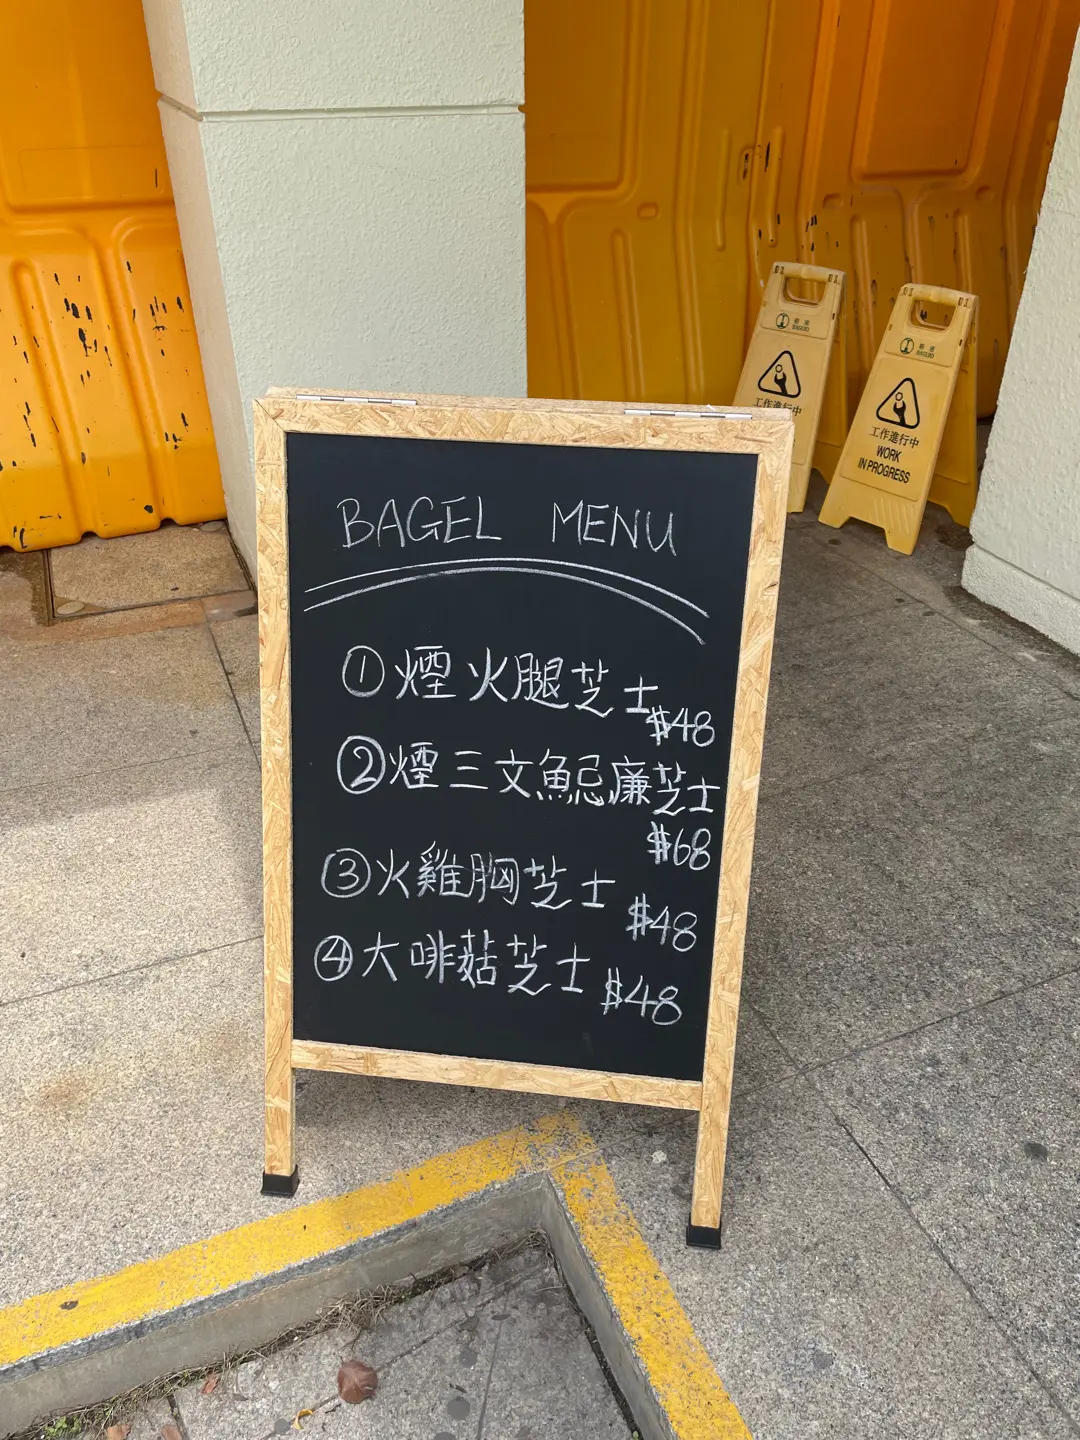 BAGEL MENU
①煙火腿芝士 $48
②煙三文魚忌廉芝士
$68
③火雞胸芝士 $48
④大啡菇芝士 $48
工作進行中
工作進行中
WORK
IN PROGRESS
BAGUIO
BAGUIO